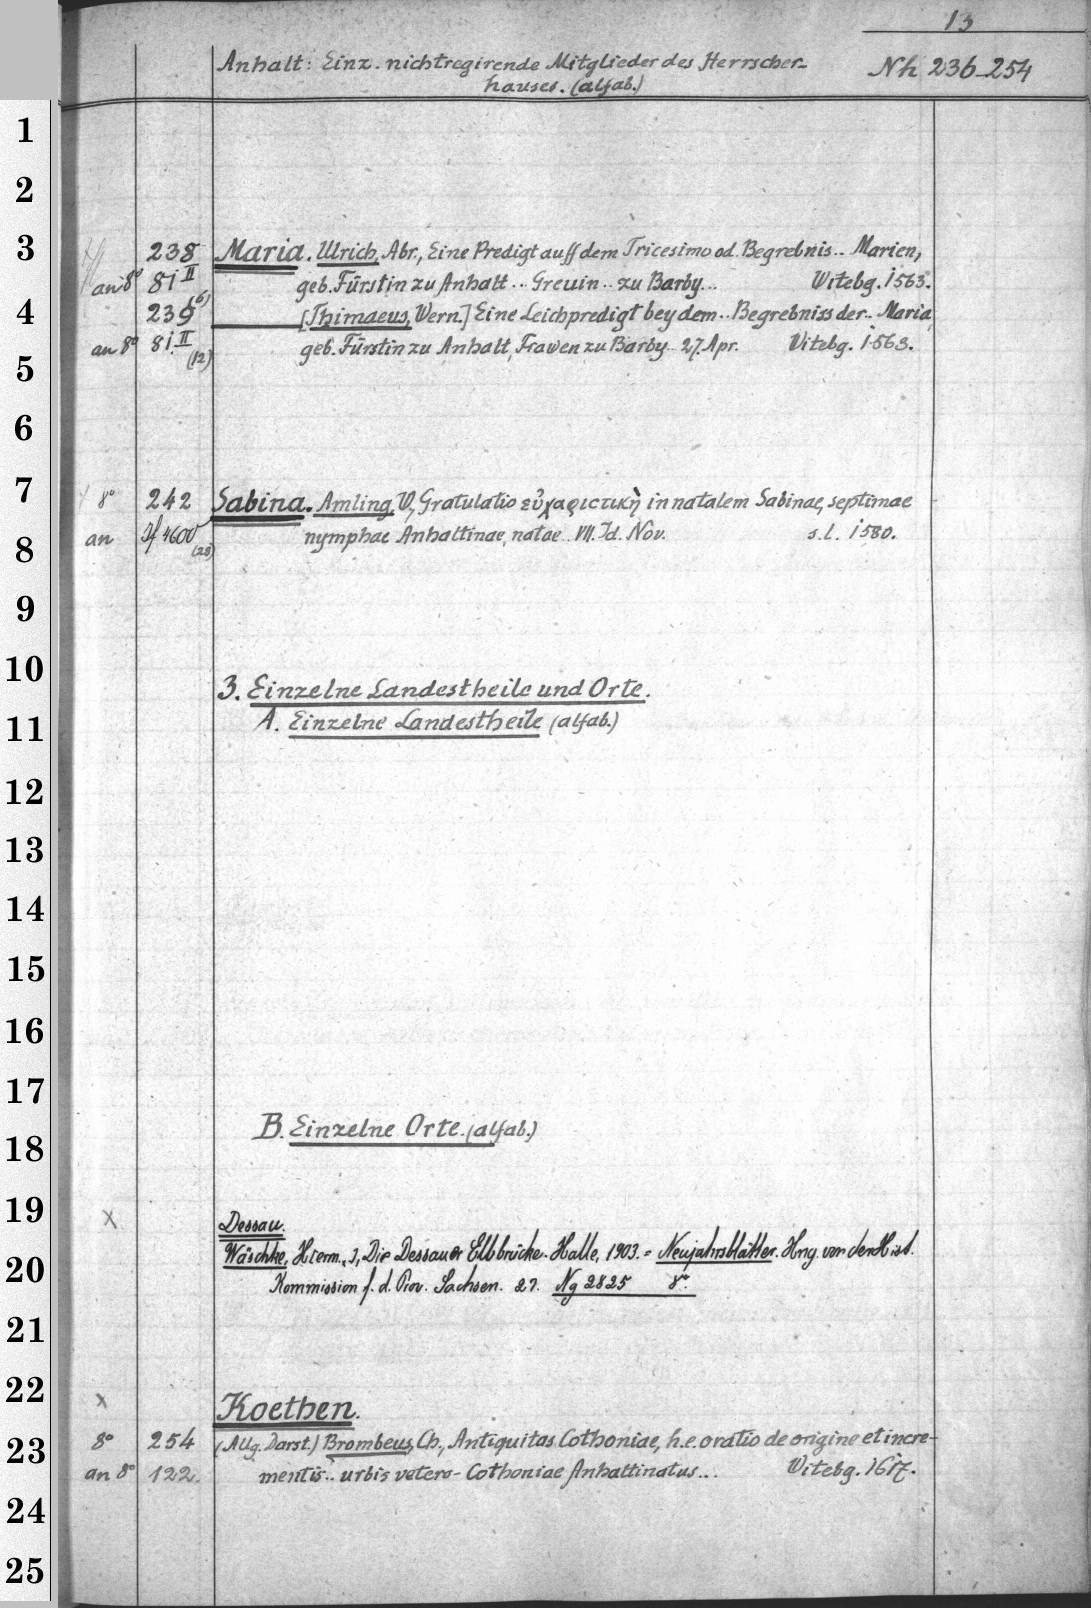 13
Anhalt: Einz. nichtregirende Mitglieder des Herrscher-
hauses. (alfab.)
Nh 236-254
1
2
3
238 Maria. Ulrich, Abr., Eine Predigt auff dem Tricesimo od. Begrebnis .. Marien,
an 8° 81 II geb. Fürstin zu Anhalt .. Grevin .. zu Barby ... Witebg. 1563.
(6)
4
239 [Thimaeus, Wern.] Eine Leichpredigt bey dem .. Begrebniss der .. Maria
an 8° 81. II geb. Fürstin zu Anhalt, Frawen zu Barby .. 27. Apr. Vitebg. 1563.
(12)
5
6
7
8° 242 Sabina. Amling, W., Gratulatio εὐχαριστικὴ in natalem Sabinae, septimae
an If 4600 nymphae Anhaltinae, natae .. VII. Id. Nov. s. l. 1580.
(28)
8
9
10
3. Einzelne Landestheile und Orte.
11
A. Einzelne Landestheile (alfab.)
12
13
14
15
16
17
18
B. Einzelne Orte. (alfab.)
19
x Dessau.
20
Wäschke, Herm., Die Dessauer Elbbrücke. Halle, 1903. = Neujahrsblätter. Hrg. von der Hist.
Kommission f. d. Prov. Sachsen. 27. Ng 2825 8°.
21
22
x Koethen.
23
8° 254 (Allg. Darst.) Brombeus, Ch., Antiquitas Cothoniae, h. e. oratio de origine et incre-
an 8° 122. mentis .. urbis vetero-Cothoniae Anhaltinatus ... Witebg. 1617.
24
25